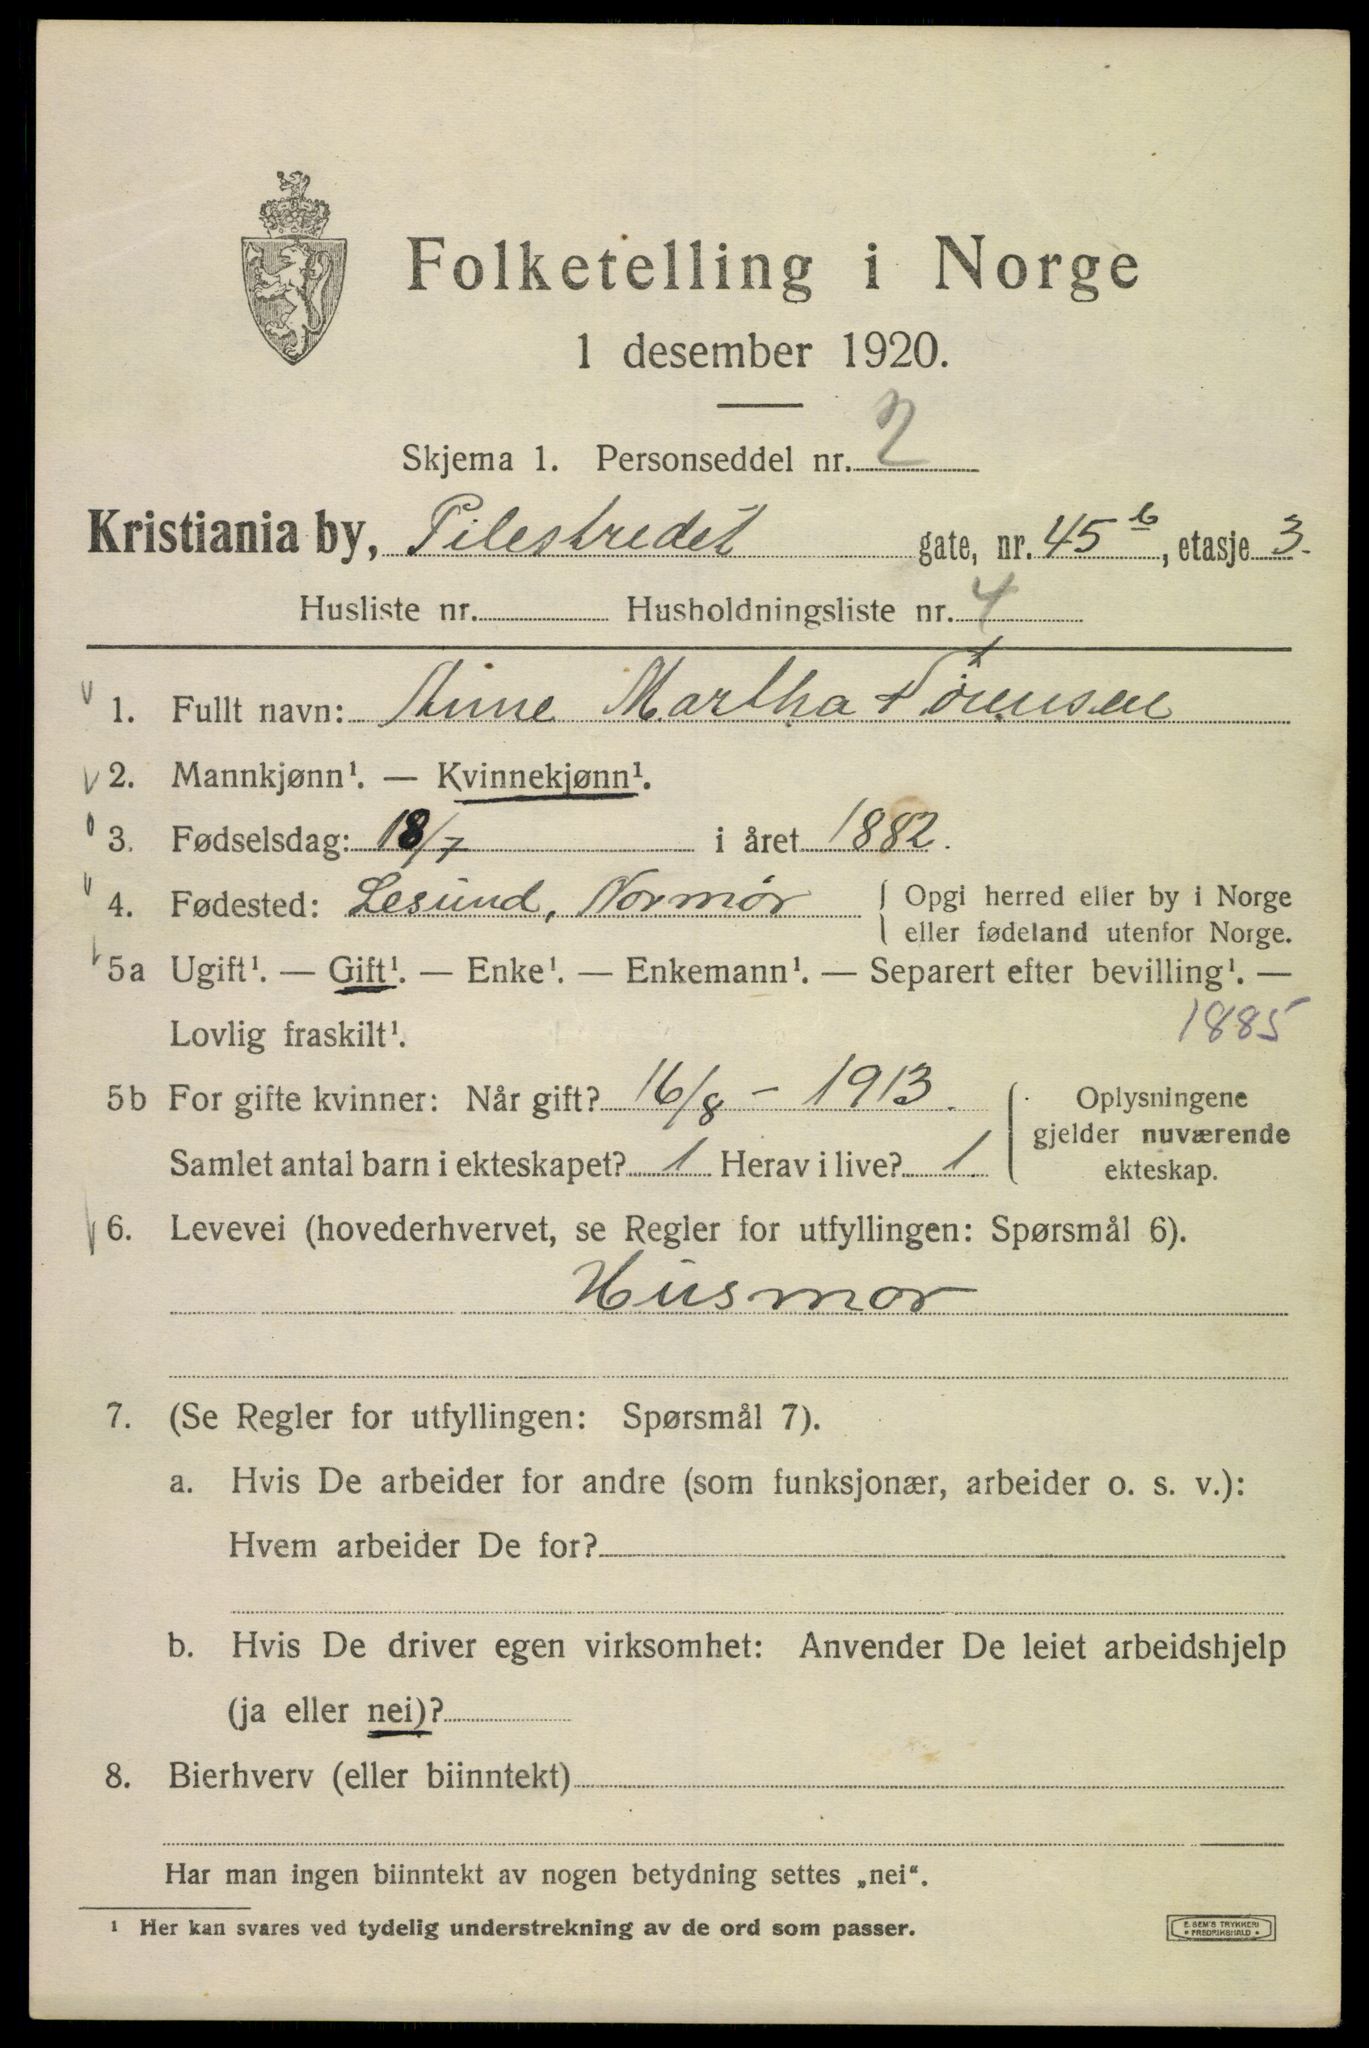 Folketelling i Norge
1 desember 1920.
Skjema 1. Personseddel nr. 2
Kristiania by, Pilestredet gate, nr. 45 b, etasje 3.
Husliste nr. Husholdningsliste nr. 4
1. Fullt navn: Anne Martha Sørensen
2. Mannkjønn¹. — Kvinnekjønn¹.
3. Fødselsdag: 18/7 i året 1882.
4. Fødested: Lesund, Normør { Opgi herred eller by i Norge
eller fødeland utenfor Norge.
5a Ugift¹. — Gift¹. — Enke¹. — Enkemann¹. — Separert efter bevilling¹. —
Lovlig fraskilt¹. 1885
5b For gifte kvinner: Når gift? 16/8 - 1913.
Samlet antal barn i ekteskapet? 1 Herav i live? 1.
Oplysningene
gjelder nuværende
ekteskap.
6. Levevei (hovederhvervet, se Regler for utfyllingen: Spørsmål 6).
Husmor
7. (Se Regler for utfyllingen: Spørsmål 7).
a. Hvis De arbeider for andre (som funksjonær, arbeider o. s. v.):
Hvem arbeider De for?
b. Hvis De driver egen virksomhet: Anvender De leiet arbeidshjelp
(ja eller nei)?
8. Bierhverv (eller biinntekt)
Har man ingen biinntekt av nogen betydning settes „nei“.
¹ Her kan svares ved tydelig understrekning av de ord som passer.
E. SEM'S TRYKKERI
* FREDRIKSHALD *